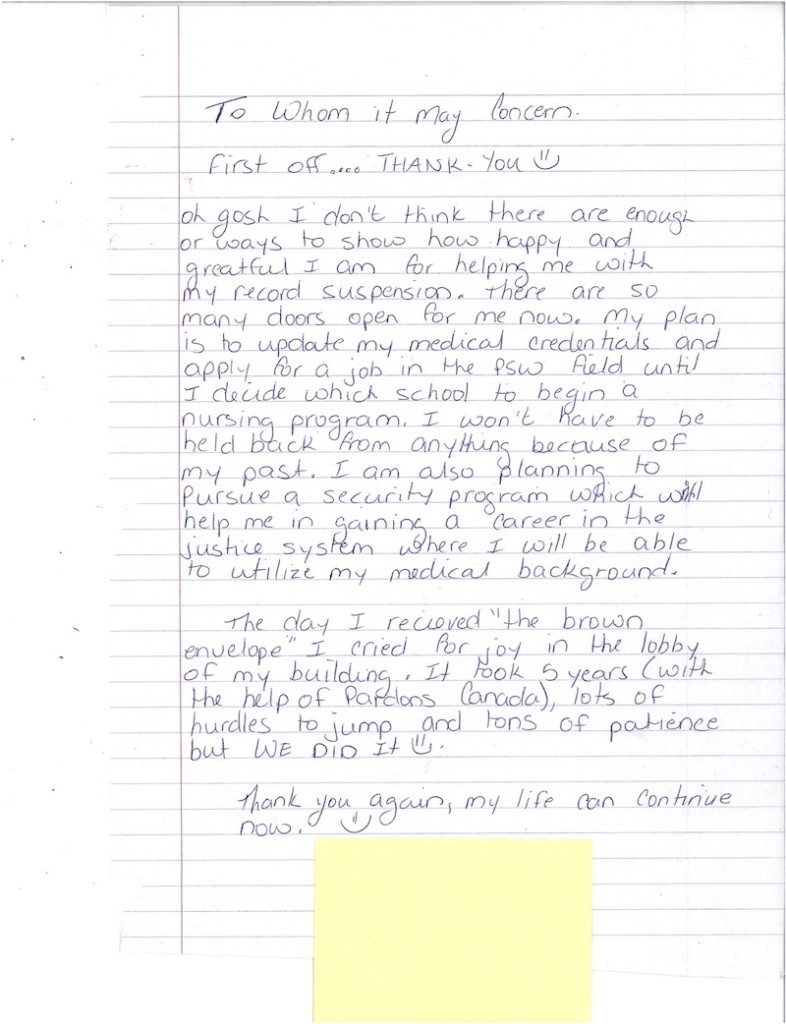 To Whom it may Concern.
First off.... THANK-YOU
oh gosh I don't think there are enough
or ways to show how happy and
greatful I am for helping me with
my record suspension. There are so
many doors open for me now. My plan
is to update my medical credentials and
apply for a job in the PSW field until
I decide which school to begin a
nursing program. I won't have to be
held back from anything because of
my past. I am also planning to
Pursue a security program which will
help me in gaining a career in the
justice system where I will be able
to utilize my medical background.
The day I recieved "the brown
envelope" I cried for joy in the lobby
of my building. It took 5 years (with
the help of Pardons Canada), lots of
hurdles to jump and tons of patience
but WE DID It.
Thank you again, my life can continue
now.